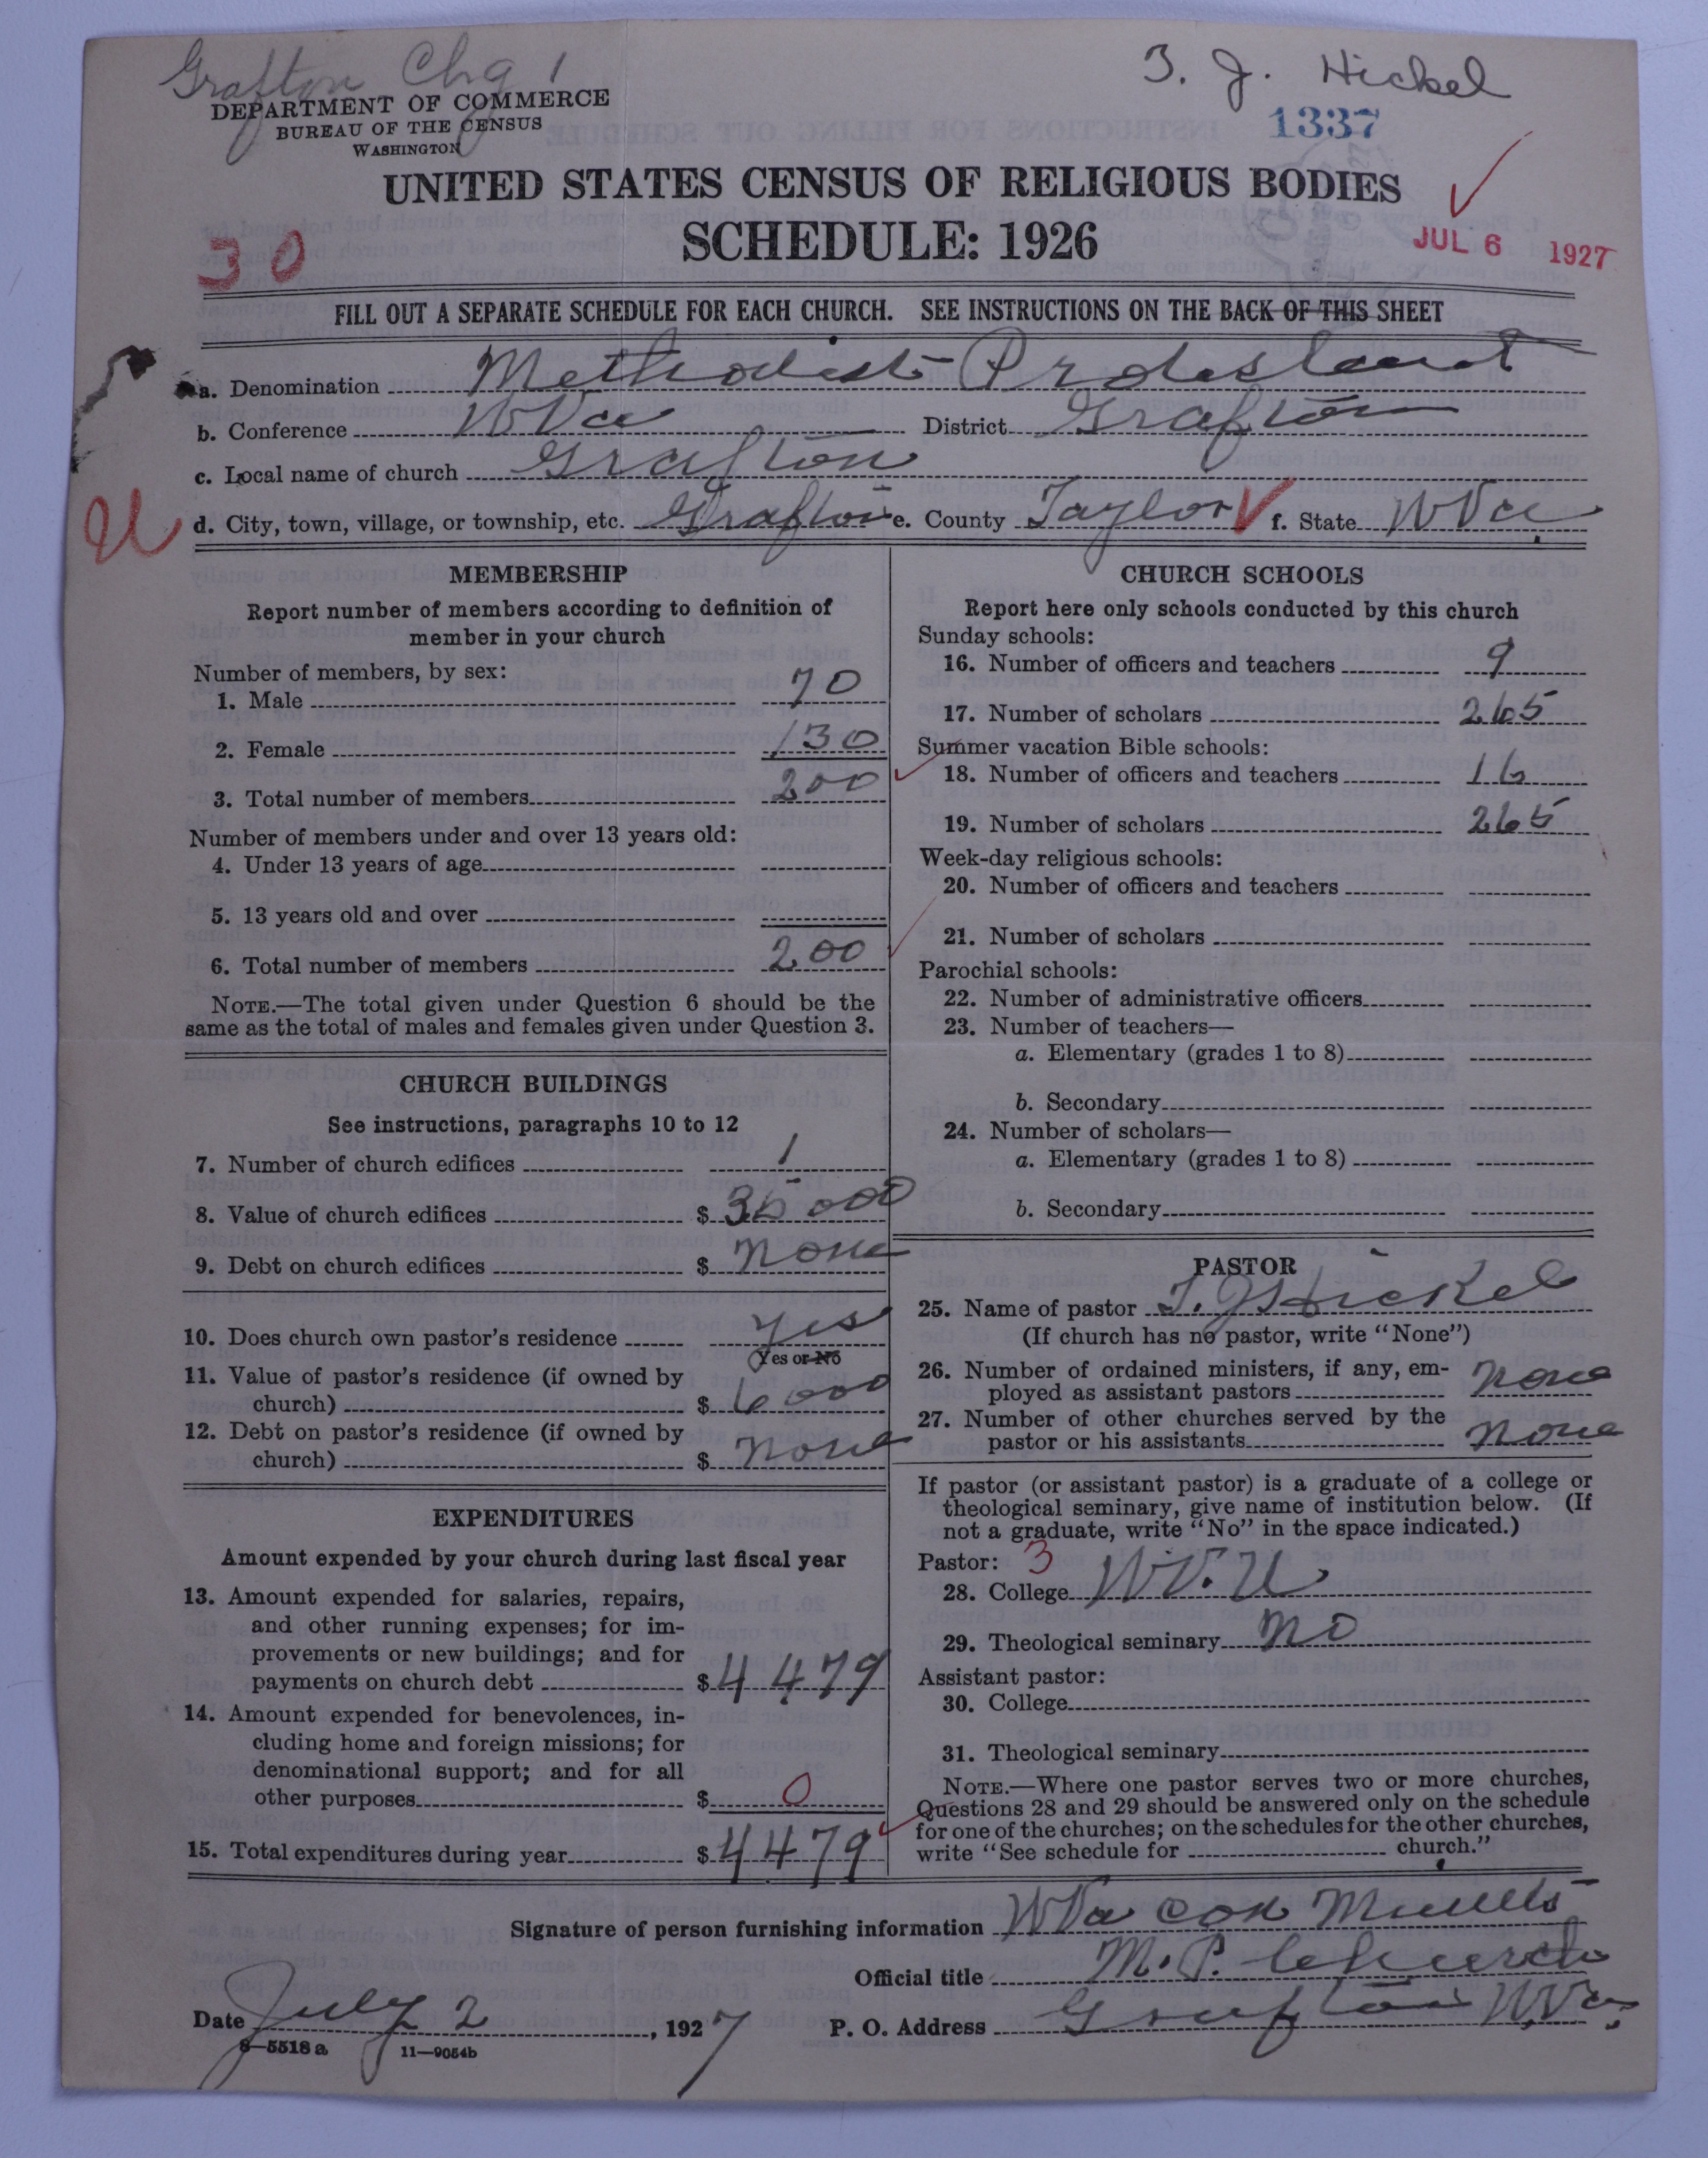 Grafton Chg 1
T. J. Hickel
DEPARTMENT OF COMMERCE
BUREAU OF THE CENSUS
WASHINGTON
1337
UNITED STATES CENSUS OF RELIGIOUS BODIES
SCHEDULE: 1926
30
JUL 6 1927
FILL OUT A SEPARATE SCHEDULE FOR EACH CHURCH. SEE INSTRUCTIONS ON THE BACK OF THIS SHEET
a. Denomination Methodist Protestant
b. Conference W Va District Grafton
c. Local name of church Grafton
U d. City, town, village, or township, etc. Grafton e. County Taylor f. State W Va
MEMBERSHIP
Report number of members according to definition of
member in your church
Number of members, by sex:
1. Male 70
2. Female 130
3. Total number of members 200
Number of members under and over 13 years old:
4. Under 13 years of age
5. 13 years old and over
6. Total number of members 200
NOTE.—The total given under Question 6 should be the
same as the total of males and females given under Question 3.
CHURCH BUILDINGS
See instructions, paragraphs 10 to 12
7. Number of church edifices 1
8. Value of church edifices $ 35 000
9. Debt on church edifices $ None
10. Does church own pastor's residence Yes
Yes or No
11. Value of pastor's residence (if owned by
church) $ 6000
12. Debt on pastor's residence (if owned by
church) $ None
EXPENDITURES
Amount expended by your church during last fiscal year
13. Amount expended for salaries, repairs,
and other running expenses; for im-
provements or new buildings; and for
payments on church debt $ 4479
14. Amount expended for benevolences, in-
cluding home and foreign missions; for
denominational support; and for all
other purposes $ 0
15. Total expenditures during year $ 4479
CHURCH SCHOOLS
Report here only schools conducted by this church
Sunday schools:
16. Number of officers and teachers 9
17. Number of scholars 265
Summer vacation Bible schools:
18. Number of officers and teachers 16
19. Number of scholars 265
Week-day religious schools:
20. Number of officers and teachers
21. Number of scholars
Parochial schools:
22. Number of administrative officers
23. Number of teachers—
a. Elementary (grades 1 to 8)
b. Secondary
24. Number of scholars—
a. Elementary (grades 1 to 8)
b. Secondary
PASTOR
25. Name of pastor T. J Hickel
(If church has no pastor, write "None")
26. Number of ordained ministers, if any, em-
ployed as assistant pastors None
27. Number of other churches served by the
pastor or his assistants None
If pastor (or assistant pastor) is a graduate of a college or
theological seminary, give name of institution below. (If
not a graduate, write "No" in the space indicated.)
Pastor: 3
28. College W.V.U
29. Theological seminary No
Assistant pastor:
30. College
31. Theological seminary
NOTE.—Where one pastor serves two or more churches,
Questions 28 and 29 should be answered only on the schedule
for one of the churches; on the schedules for the other churches,
write "See schedule for church."
Signature of person furnishing information W Va Con Minutes
Official title M. P. Church
Date July 2, 1927 P. O. Address Grafton W. Va.
8—5518 a 11—9054b